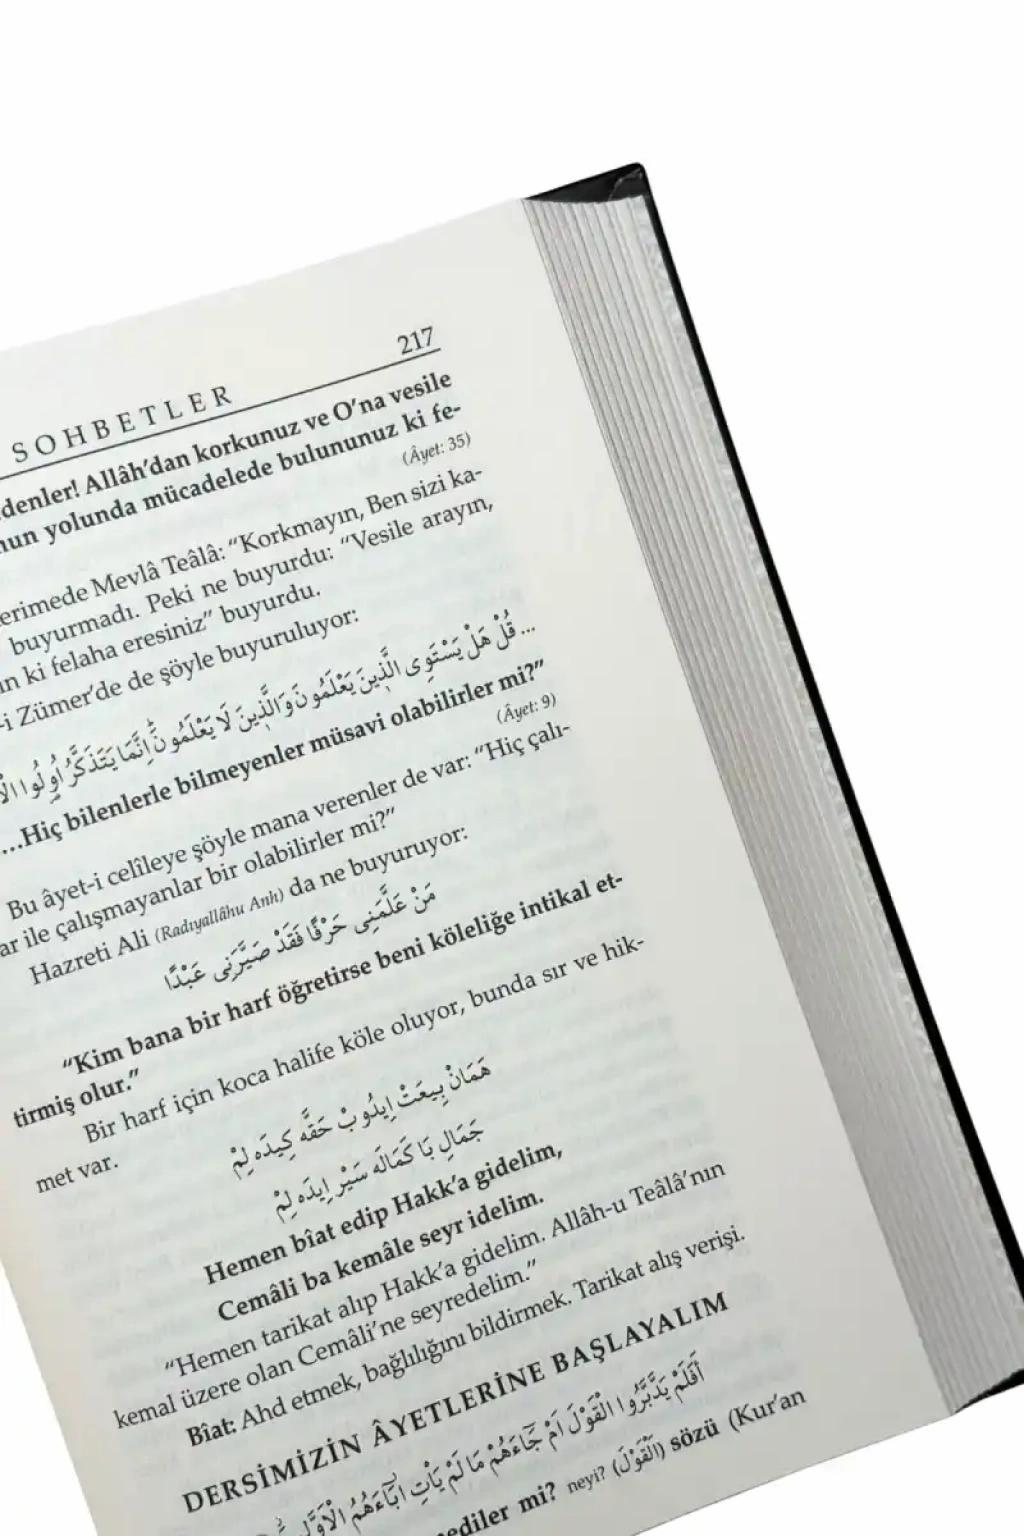 SOHBETLER 217
Allâh'dan korkunuz ve O'na vesile
yolunda mücadelede bulununuz ki fe-
(Âyet: 35)
Mevlâ Teâlâ: "Korkmayın, Ben sizi ka-
buyurmadı. Peki ne buyurdu: "Vesile arayın,
ki felaha eresiniz" buyurdu.
-i Zümer'de de şöyle buyuruluyor:
... قُلْ هَلْ يَسْتَوِى الَّذِينَ يَعْلَمُونَ وَالَّذِينَ لَا يَعْلَمُونَ اِنَّمَا يَتَذَكَّرُ اُولُوا
...Hiç bilenlerle bilmeyenler müsavi olabilirler mi?"
(Âyet: 9)
Bu âyet-i celîleye şöyle mana verenler de var: "Hiç çalı-
ar ile çalışmayanlar bir olabilirler mi?"
Hazreti Ali (Radıyallâhu Anh) da ne buyuruyor:
مَنْ عَلَّمَنِى حَرْفًا فَقَدْ صَيَّرَنِى عَبْدًا
"Kim bana bir harf öğretirse beni köleliğe intikal et-
tirmiş olur."
Bir harf için koca halife köle oluyor, bunda sır ve hik-
met var.
هَمَانْ بِيعَتْ اِيدُوبْ حَقَّه كِيدَه لِمْ
جَمَالِ بَا كَمَالَه سَيْر اِيدَه لِمْ
Hemen bîat edip Hakk'a gidelim,
Cemâli ba kemâle seyr idelim.
"Hemen tarikat alıp Hakk'a gidelim. Allâh-u Teâlâ'nın
kemal üzere olan Cemâli'ne seyredelim."
Bîat: Ahd etmek, bağlılığını bildirmek. Tarikat alış verişi.
DERSİMİZİN ÂYETLERİNE BAŞLAYALIM
اَفَلَمْ يَدَّبَّرُوا الْقَوْلَ اَمْ جَٓاءَهُمْ مَا لَمْ يَاْتِ اٰبَٓاءَهُمُ الْاَوَّل
mediler mi? neyi? (الْقَوْلَ) sözü (Kur'an